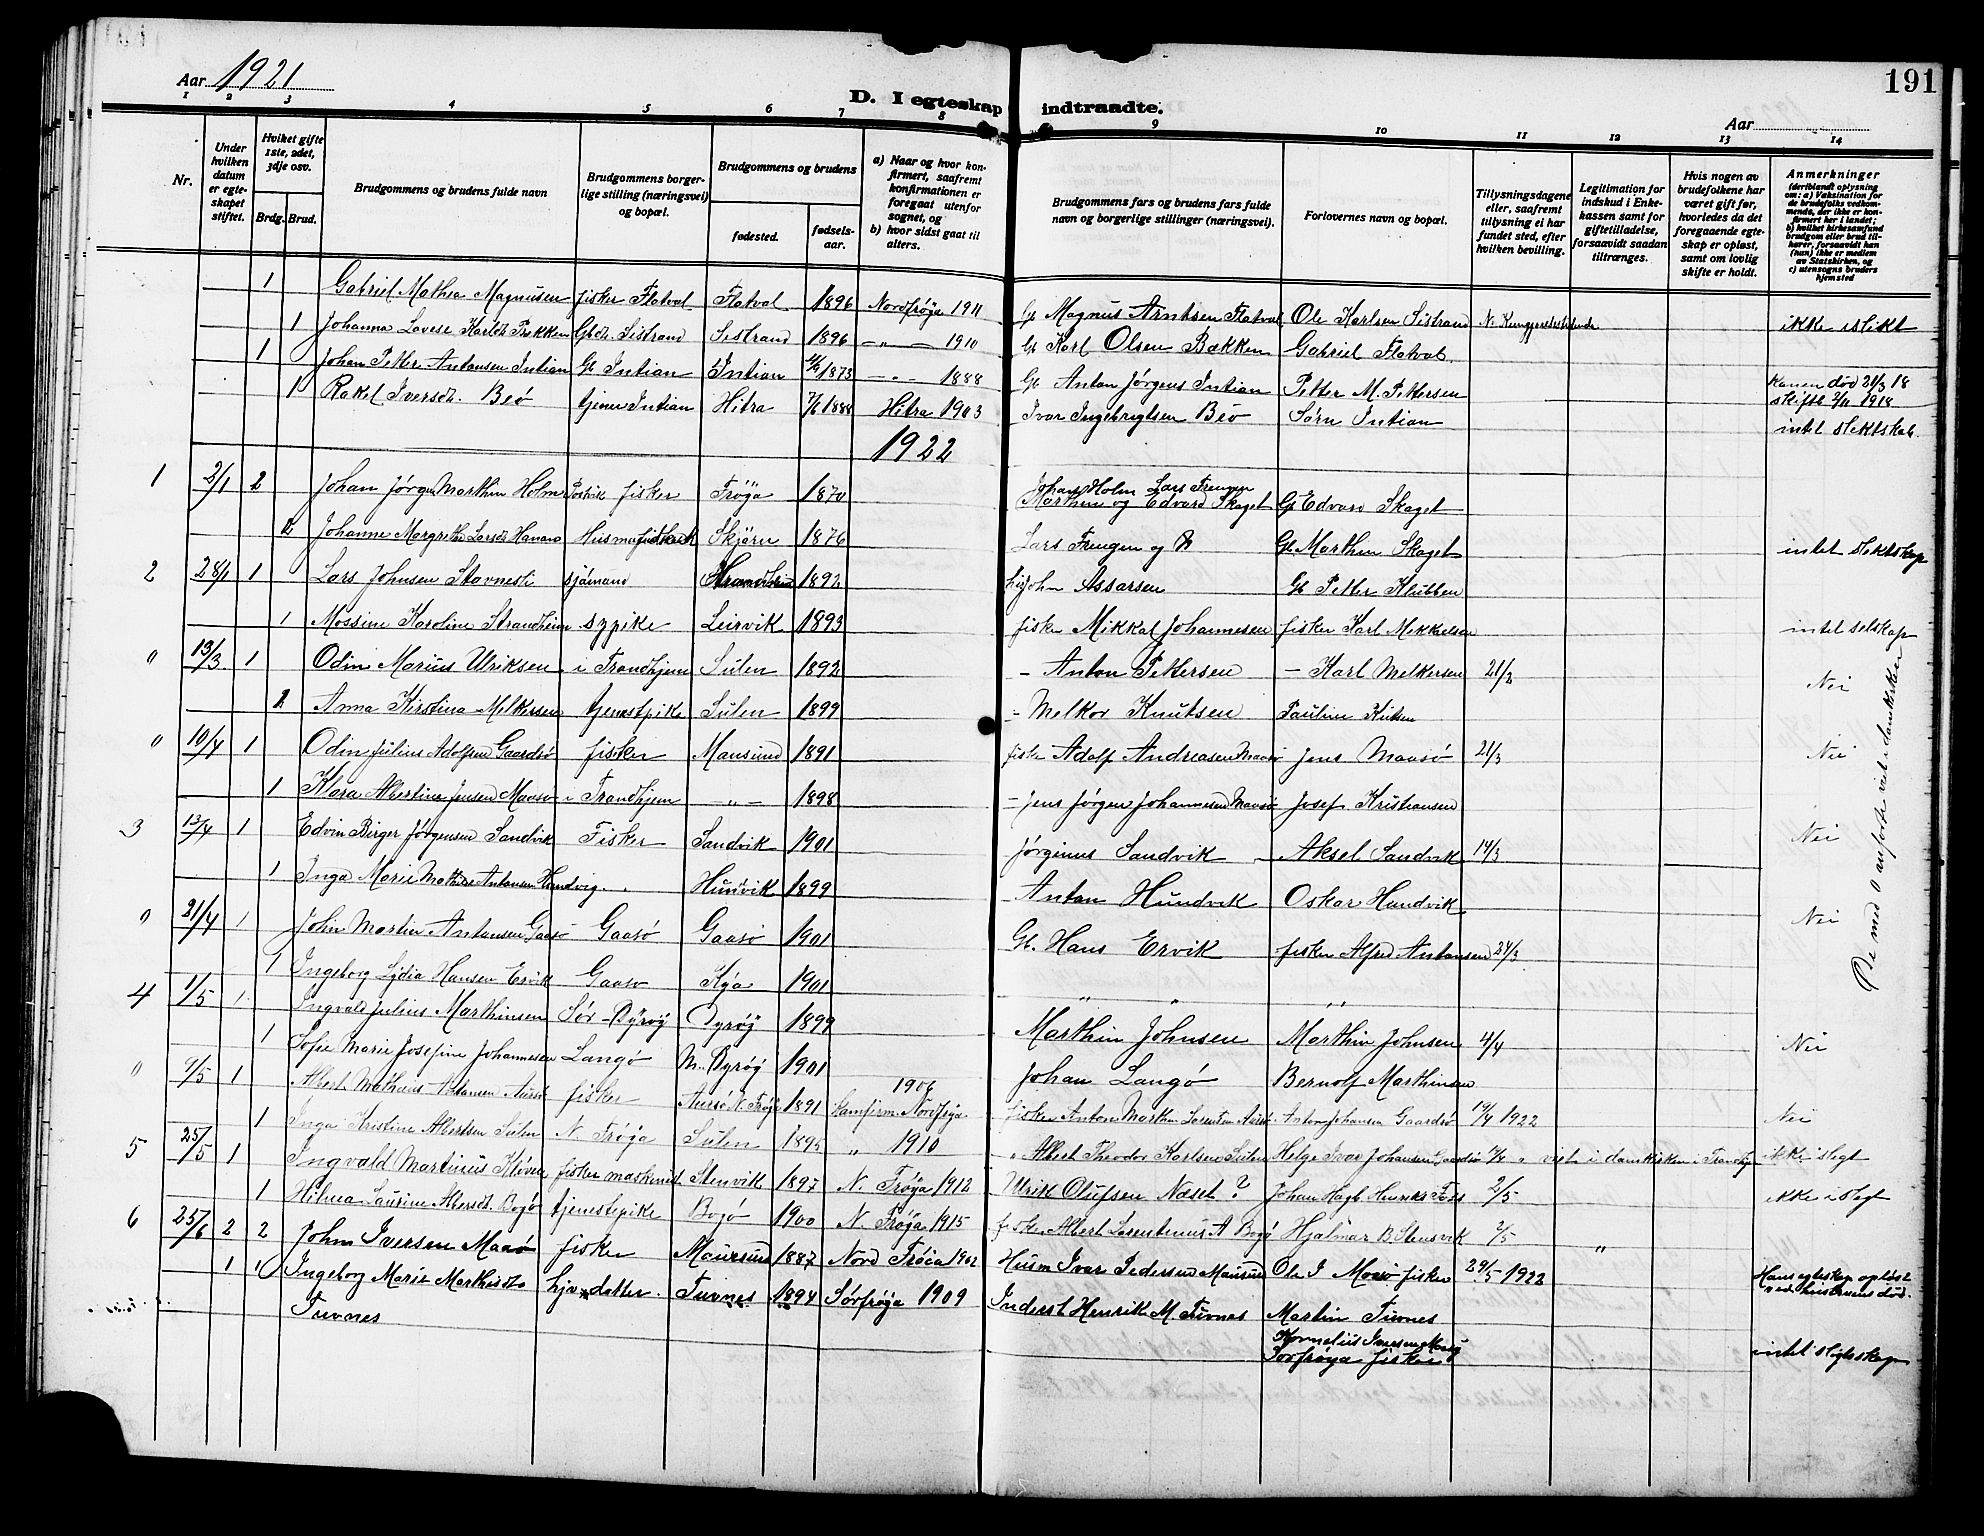 191
Aar 1921
D. I egteskap indtraadte.
Aar
1 2 3 4 5 6 7 8 9 10 11 12 13 14
Nr.
Under hvilken datum er egteskapet stiftet.
Hvilket gifte 1ste, 2det, 3dje osv.
Brdg. Brud.
Brudgommens og brudens fulde navn
Brudgommens borgerlige stilling (næringsvei) og bopæl.
Brudgommens og brudens
fødested. fødselsaar.
a) Naar og hvor konfirmert, saafremt konfirmationen er foregaat utenfor sognet, og b) hvor sidst gaat til alters.
Brudgommens fars og brudens fars fulde navn og borgerlige stillinger (næringsvei).
Forlovernes navn og bopæl.
Tillysningsdagene eller, saafremt tillysning ei har fundet sted, efter hvilken bevilling.
Legitimation for indskud i Enkekassen samt for giftetilladelse, forsaavidt saadan tiltrænges.
Hvis nogen av brudefolkene har været gift før, hvorledes da det foregaaende egteskap er opløst, samt om lovlig skifte er holdt.
Anmerkninger (deriblandt oplysning om: a) Vaksination for de brudefolks vedkommende, der ikke er konfirmert her i landet; b) hvilket kirkesamfund brudgom eller brud tilhører, forsaavidt han (hun) ikke er medlem av Statskirken, og c) utensogns bruders hjemsted
1 Gabriel Mathea Magnusen fisker Flatval Flatval 1896 Nordfrøya 1911 Gb Magnus Arntsen Flatval Ole Karlsen Sistrand ikke i slekt
1 Johanna Lovese Karlsd. Bekken Gbdtr Sistrand Sistrand 1896 — " — 1910 Gb Karl Olsen Bakken Gabriel Flatval
1 Johan Petter Antonsen Intian Gb Intian Intian 1873 — " — 1888 Gb Anton Jørgens Intian Petter M. Pettersen Konen død 21/3 18 skifte 2/11 1918
1 Rakel Iversdt. Beó tjener Intian Hitra 7/6 1888 Hitra 1903 Ivar Ingebrigtsen Beo Sørn Intian intet slektskab.
1922
1 2/1 2 Johan Jørgen Marthin Holm fisker Frøya 1870 Johans Holm Lars Frengen Marthin og Edvard Skaget Gb Edvard Skaget
2 Johanne Margrethe Larsdt Hanano Skjørn 1876 Lars Frengen og Gb Marthin Skaget intet slektskap
2 28/1 1 Lars Johnsen Stavnesli sjómand 1892 John Assarsen Gb Petter Klubben
1 Mossine Karoline Strandheim sypike Leirvik 1893 fisker Mikkal Johannesen fisker Karl Mikkalsen intet selskap
" 13/3 1 Odin Marius Ulriksen i Trondhjem Sulen 1892 — Anton Pettersen — Karl Melkersen 21/2
1 Anna Kirstina Melkersen tjenestpike Sulen 1899 — Melkor Knutsen Pauline Knutsen Nei
" 10/4 1 Odin Julius Adolfsen Gaardsó fisker Mausund 1891 fisker Adolf Andreasen Maasó Jens Maasó 21/3 Nei
1 Klara Albertine Jensen Maasó i Trondhjem — " — 1898 — Jens Jørgen Johannesen Maasó Josef Kristiansen
3 13/4 1 Edvin Birger Jørgensen Sandvik Fisker Sandvik 1901 Jørginus Sandvik — Aksel Sandvik 14/3 Nei
1 Inga Marie Mathilde Antonsen Hundvig " Hundvik 1899 — Anton Hundvik Oskar Hundvik
" 21/4 1 John Martin Antonsen Gaasó Gaasó Gaasó 1901 Gb. Hans Ervik fisker Alfred Antonsen 24/3 Nei
1 Ingeborg Lydia Hansen Ervik Gaasó Kya 1901 " " "
4 1/5 1 Ingvald Julius Marthinsen Sør-Dyrøy Dyrøy 1899 Marthin Johnsen Marthin Johnsen 4/4 Nei
1 Sofie Marie Josefine Johannesen Langó M. Dyrøy 1901 Johan Langó Bernolf Marthinsen
" 9/5 1 Albert Mathius Antonsen Aursó fisker Aursó N. Frøya 1891 konfirm. Nordfrøya 1906 fisker Anton Marthin Lorentsen Aursó Anton Johansen Gaardsó 19/4 1922 Nei
1 Inga Kristine Albertsen Sulen N. Frøya Sulen 1895 " 1910 " Albert Theodor Karlsen Sulen Helge Ivar Johansen Gaardsó " viet i domkirken i Trondhjem ikke i slegt
5 25/5 1 Ingvald Martinus Kløven fisker maskinist Stenvik 1897 N. Frøya 1912 Ulrik Olufsen Næset? Johan Hagb. Henriks Foss 2/5 ikke i slegt
1 Hilma Laurine Albersdt. Bogó tjenestepike Bogó 1900 N. Frøya 1915 fisker Albert Lorentsenius A Bogó Hjalmar B. Stensvik 2/5
6 25/6 2 2 John Iversen Maaó fisker Mausund 1887 Nord Frøia 1902 Husm Ivar Pedersen Mausund Ole I Maasó fisker 29/5 1922 " Hans egteskap opløst ved hustruens død.
1 1 Ingeborg Marie Mathisdt hjv. datter Tuvnes 1894 Sørfrøya 1909 Inderst Henrik M. Tuvnes Martin Tuvnes
Tuvnes
Kornelius Iversen Maasó Sørfrøya fisker intet slegtskap
De med 0 anførte viet i domkirken